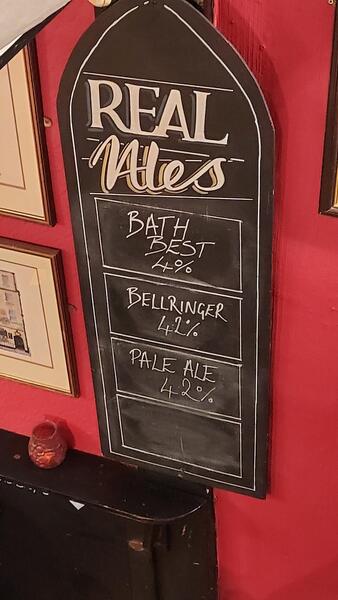 REAL
Ales
BATH
BEST
4%
BELLRINGER
42%
PALE ALE
42%